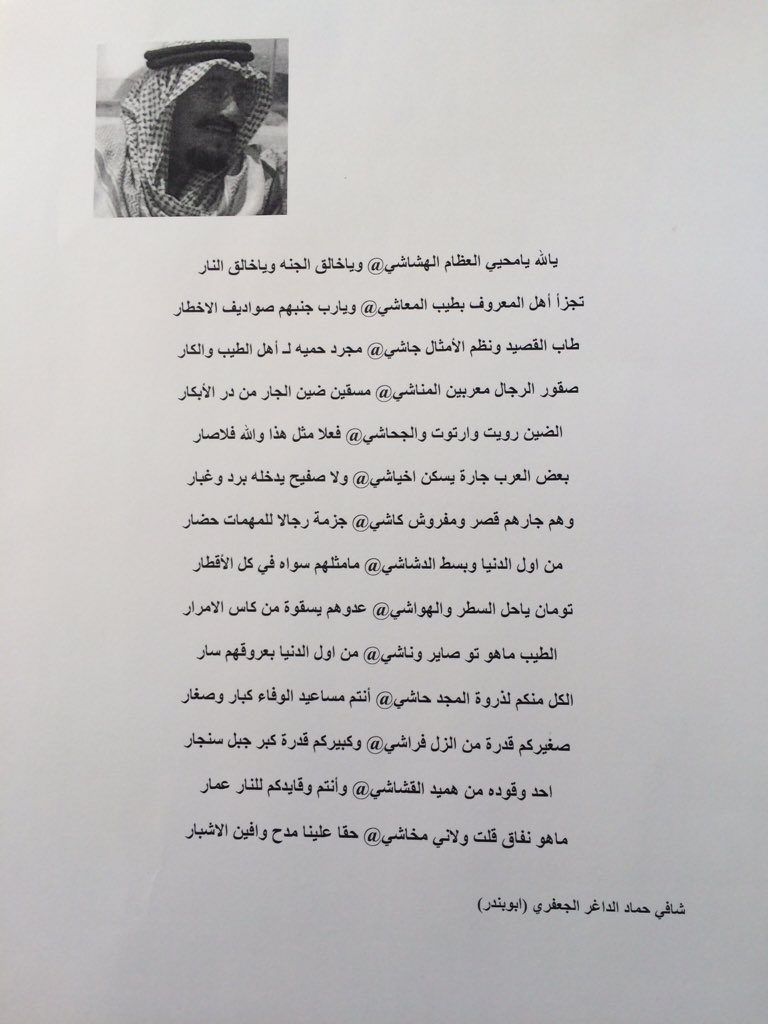 يالله يامحيي العظام الهشاشي@ وياخالق الجنه وياخالق النار
تجزأ أهل المعروف بطيب المعاشي@ ويارب جنبهم صواديف الاخطار
طاب القصيد ونظم الأمثال جاشي@ مجرد حميه لـ أهل الطيب والكار
صقور الرجال معربين المناشي@ مسقين ضين الجار من در الأبكار
الضين رويت وارتوت والجحاشي@ فعلا مثل هذا والله فلاصار
بعض العرب جارة يسكن اخياشي@ ولا صفيح يدخله برد وغبار
وهم جارهم قصر ومفروش كاشي@ جزمة رجالا للمهمات حضار
من اول الدنيا وبسط الدشاشي@ مامثلهم سواه في كل الأقطار
تومان ياحل السطر والهواشي@ عدوهم يسقوة من كاس الامرار
الطيب ماهو تو صاير وناشي@ من اول الدنيا بعروقهم سار
الكل منكم لذروة المجد حاشي@ أنتم مساعيد الوفاء كبار وصغار
صغيركم قدرة من الزل فراشي@ وكبيركم قدرة كبر جبل سنجار
احد وقوده من هميد القشاشي@ وأنتم وقايدكم للنار عمار
ماهو نفاق قلت ولاني مخاشي@ حقا علينا مدح وافين الاشبار
شافي حماد الداغر الجعفري (ابوبندر)